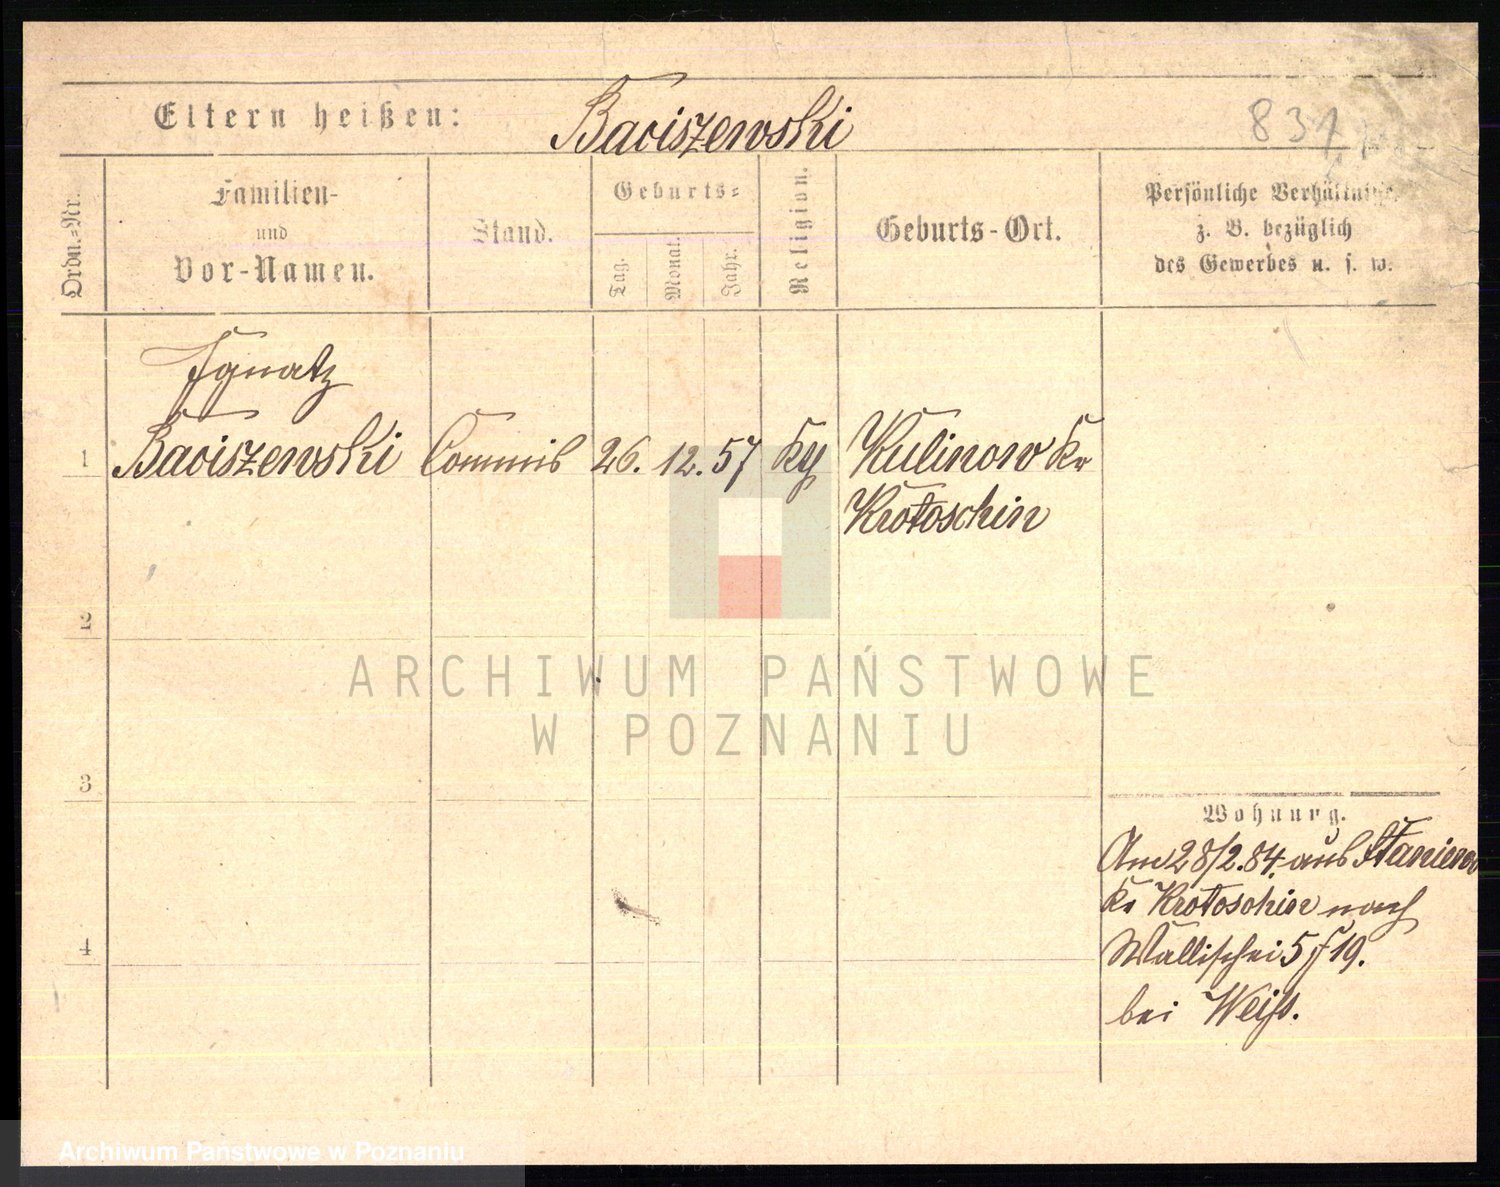 Eltern heißen: Baciszewski 831
Ordn.-Nr.
Familien-
und
Vor-Namen.
Stand.
Geburts-
Tag.
Monat.
Jahr.
Religion.
Geburts-Ort.
Persönliche Verhältnisse
z. B. bezüglich
des Gewerbes u. s. w.
Ignatz
1 Baciszewski Commis 26. 12. 57 Kulinow Kr
Krotoschin
2
3
Wohnung.
Am 28/2.84. aus
Kr Krotoschin nach
4
Wallischei 5 f 19.
bei Weiß.
ARCHIWUM PAŃSTWOWE
W POZNANIU
Archiwum Państwowe w Poznaniu